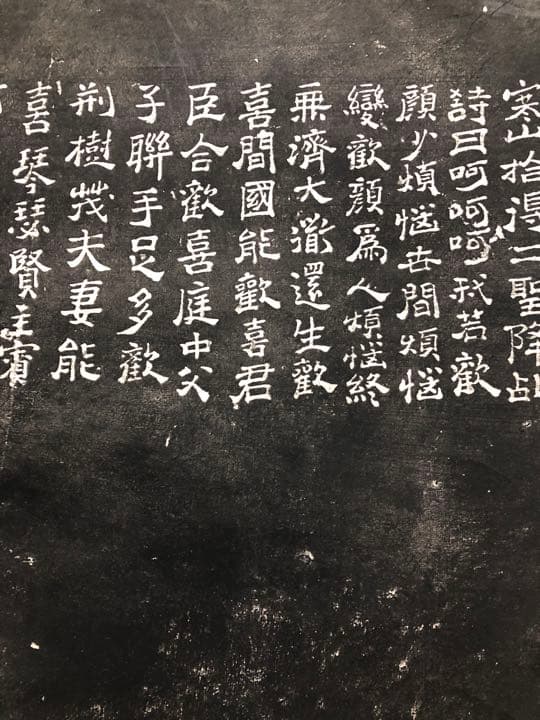 寒山拾得二聖降乩
詩曰呵呵呵我若歡
顔少煩惱世間煩惱
變歡顔爲人煩惱終
無濟大道還生歡
喜間國能歡喜君
臣合歡喜庭中父
子聯手足多歡
荆樹茂夫妻能
喜琴瑟賢主賓